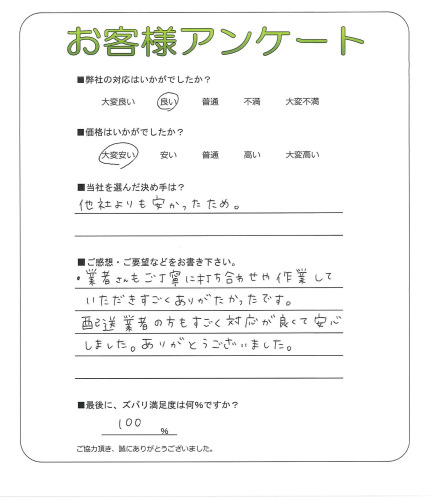 お客様アンケート
■弊社の対応はいかがでしたか？
大変良い 良い 普通 不満 大変不満
■価格はいかがでしたか？
大変安い 安い 普通 高い 大変高い
■当社を選んだ決め手は？
他社よりも安かったため。
■ご感想・ご要望などをお書き下さい。
・業者さんもご丁寧に打ち合わせや作業して
いただきすごくありがたかったです。
配送業者の方もすごく対応が良くて安心
しました。ありがとうございました。
■最後に、ズバリ満足度は何％ですか？
100 ％
ご協力頂き、誠にありがとうございました。